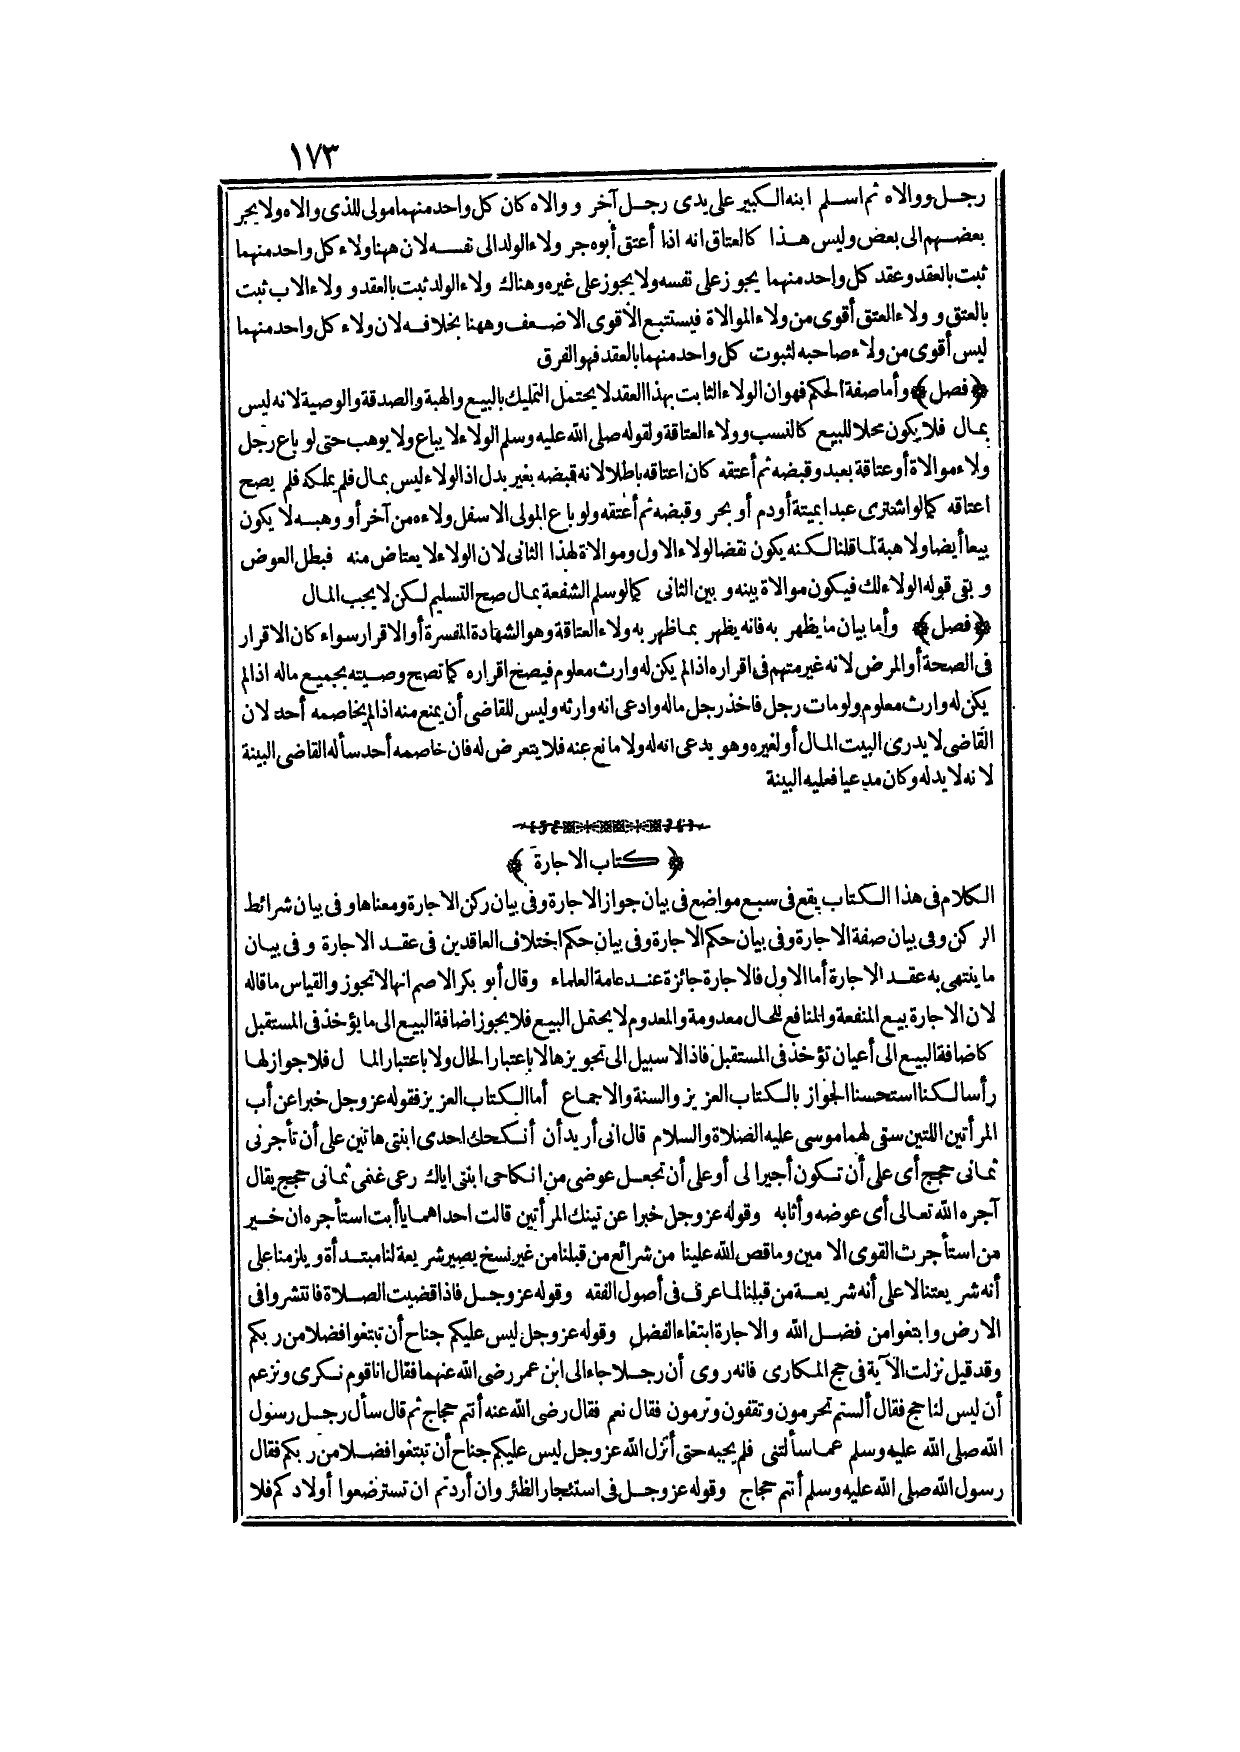 ١٧٣
رجل ووالاه ثم اسلم ابنه الكبير على يدى رجل آخر ووالاه كان كل واحد منهما مولى للذى والاه ولا يجر
بعضهم الى بعض وليس هذا كالعتاق انه اذا أعتق أبوه جر ولاء الولد الى نفسه لان ههنا ولاء كل واحد منهما
ثبت بالعقد وعقد كل واحد منهما يجوز على نفسه ولا يجوز على غيره وهناك ولاء الولد ثبت بالعقد وولاء الاب ثبت
بالعتق وولاء العتق أقوى من ولاء الموالاة فيستتبع الأقوى الاضعف وههنا بخلافه لان ولاء كل واحد منهما
ليس أقوى من ولاء صاحبه لثبوت كل واحد منهما بالعقد فهو الفرق
﴿فصل﴾ وأما صفة الحكم فهو ان الولاء الثابت بهذا العقد لا يحتمل التمليك بالبيع والهبة والصدقة والوصية لانه ليس
بمال فلا يكون محلا للبيع كالنسب وولاء العتاقة ولقوله صلى الله عليه وسلم الولاء لا يباع ولا يوهب حتى لو باع رجل
ولاء موالاة أو عتاقة بعبد وقبضه ثم أعتقه كان اعتاقه باطلا لانه قبضه بغير بدل اذ الولاء ليس بمال فلم يملكه فلم يصح
اعتاقه كما لو اشترى عبدا بميتة أو دم أو بحر وقبضه ثم أعتقه ولو باع المولى الاسفل ولاءه من آخر أو وهبه لا يكون
بيعا أيضا ولا هبة لما قلنا لكنه يكون نقضا لولاء الاول وموالاة لهذا الثانى لان الولاء لا يعتاض منه فبطل العوض
وبقى قوله الولاء لك فيكون موالاة بينه وبين الثانى كما لو سلم الشفعة بمال صح التسليم لكن لا يجب المال
﴿فصل﴾ وأما بيان ما يظهر به فانه يظهر بما ظهر به ولاء العتاقة وهو الشهادة المفسرة أو الاقرار سواء كان الاقرار
فى الصحة أو المرض لانه غير متهم فى اقراره اذا لم يكن له وارث معلوم فيصح اقراره كما تصح وصيته بجميع ماله اذا لم
يكن له وارث معلوم ولو مات رجل فاخذ رجل ماله وادعى انه وارثه وليس للقاضى أن يمنع منه اذا لم يخاصمه أحد لان
القاضى لا يدرى البيت المال أو لغيره وهو يدعى انه له ولا مانع عنه فلا يتعرض له فان خاصمه أحد سأله القاضى البينة
لانه لا يد له وكان مدعيا فعليه البينة
﴿كتاب الاجارة﴾
الكلام فى هذا الكتاب يقع فى سبع مواضع فى بيان جواز الاجارة وفى بيان ركن الاجارة ومعناها وفى بيان شرائط
الركن وفى بيان صفة الاجارة وفى بيان حكم الاجارة وفى بيان حكم اختلاف العاقدين فى عقد الاجارة وفى بيان
ما ينتهى به عقد الاجارة أما الاول فالاجارة جائزة عند عامة العلماء وقال أبو بكر الاصم انها لا تجوز والقياس ما قاله
لان الاجارة بيع المنفعة والمنافع للحال معدومة والمعدوم لا يحتمل البيع فلا يجوز اضافة البيع الى ما يؤخذ فى المستقبل
كاضافة البيع الى أعيان تؤخذ فى المستقبل فاذا لا سبيل الى تجويزها لا باعتبار الحال ولا باعتبار المال فلا جواز لها
رأسا لكنا استحسنا الجواز بالكتاب العزيز والسنة والاجماع أما الكتاب العزيز فقوله عز وجل خبرا عن أب
المرأتين اللتين سقى لهما موسى عليه الصلاة والسلام قال انى أريد أن أنكحك احدى ابنتى هاتين على أن تأجرنى
ثمانى حجج أى على أن تكون أجيرا لى أو على أن تجعل عوضى من انكاحى ابنتى اياك رعى غنمى ثمانى حجج يقال
آجره الله تعالى أى عوضه وأثابه وقوله عز وجل خبرا عن تينك المرأتين قالت احداهما يا أبت استأجره ان خير
من استأجرت القوى الامين وما قص الله علينا من شرائع من قبلنا من غير نسخ يصير شريعة لنا مبتدأة ويلزمنا على
أنه شريعتنا لا على أنه شريعة من قبلنا لما عرف فى أصول الفقه وقوله عز وجل فاذا قضيت الصلاة فانتشروا فى
الارض وابتغوا من فضل الله والاجارة ابتغاء الفضل وقوله عز وجل ليس عليكم جناح أن تبتغوا فضلا من ربكم
وقد قيل نزلت الآية فى حج المكارى فانه روى أن رجلا جاء الى ابن عمر رضى الله عنهما فقال انا قوم نكرى ونزعم
أن ليس لنا حج فقال ألستم تحرمون وتقفون وترمون فقال نعم فقال رضى الله عنه أنتم حجاج ثم قال سأل رجل رسول
الله صلى الله عليه وسلم عما سألتنى فلم يجبه حتى أنزل الله عز وجل ليس عليكم جناح أن تبتغوا فضلا من ربكم فقال
رسول الله صلى الله عليه وسلم أنتم حجاج وقوله عز وجل فى استئجار الظئر وان أردتم ان تسترضعوا أولادكم فلا